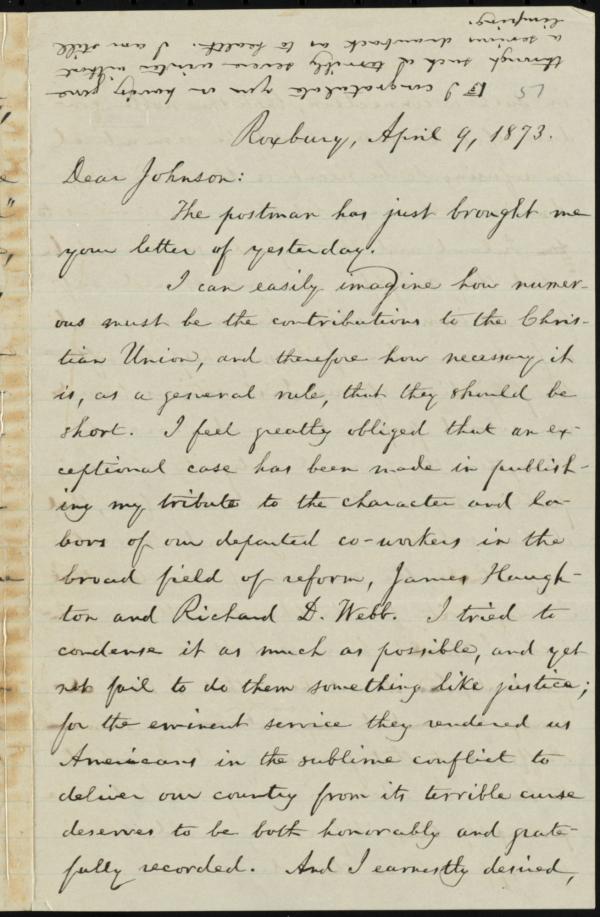 ☞ I congratulate you on having gone
through such a terribly severe winter without
a serious drawback as to health. I am still
limping.
Roxbury, April 9, 1873.
Dear Johnson:
The postman has just brought me
your letter of yesterday.
I can easily imagine how numer-
ous must be the contributions to the Chris-
tian Union, and therefore how necessary it
is, as a general rule, that they should be
short. I feel greatly obliged that an ex-
ceptional case has been made in publish-
ing my tribute to the character and la-
bors of our departed co-workers in the
broad field of reform, James Haugh-
ton and Richard D. Webb. I tried to
condense it as much as possible, and yet
not fail to do them something like justice;
for the eminent service they rendered us
Americans in the sublime conflict to
deliver our country from its terrible curse
deserves to be both honorably and grate-
fully recorded. And I earnestly desired,